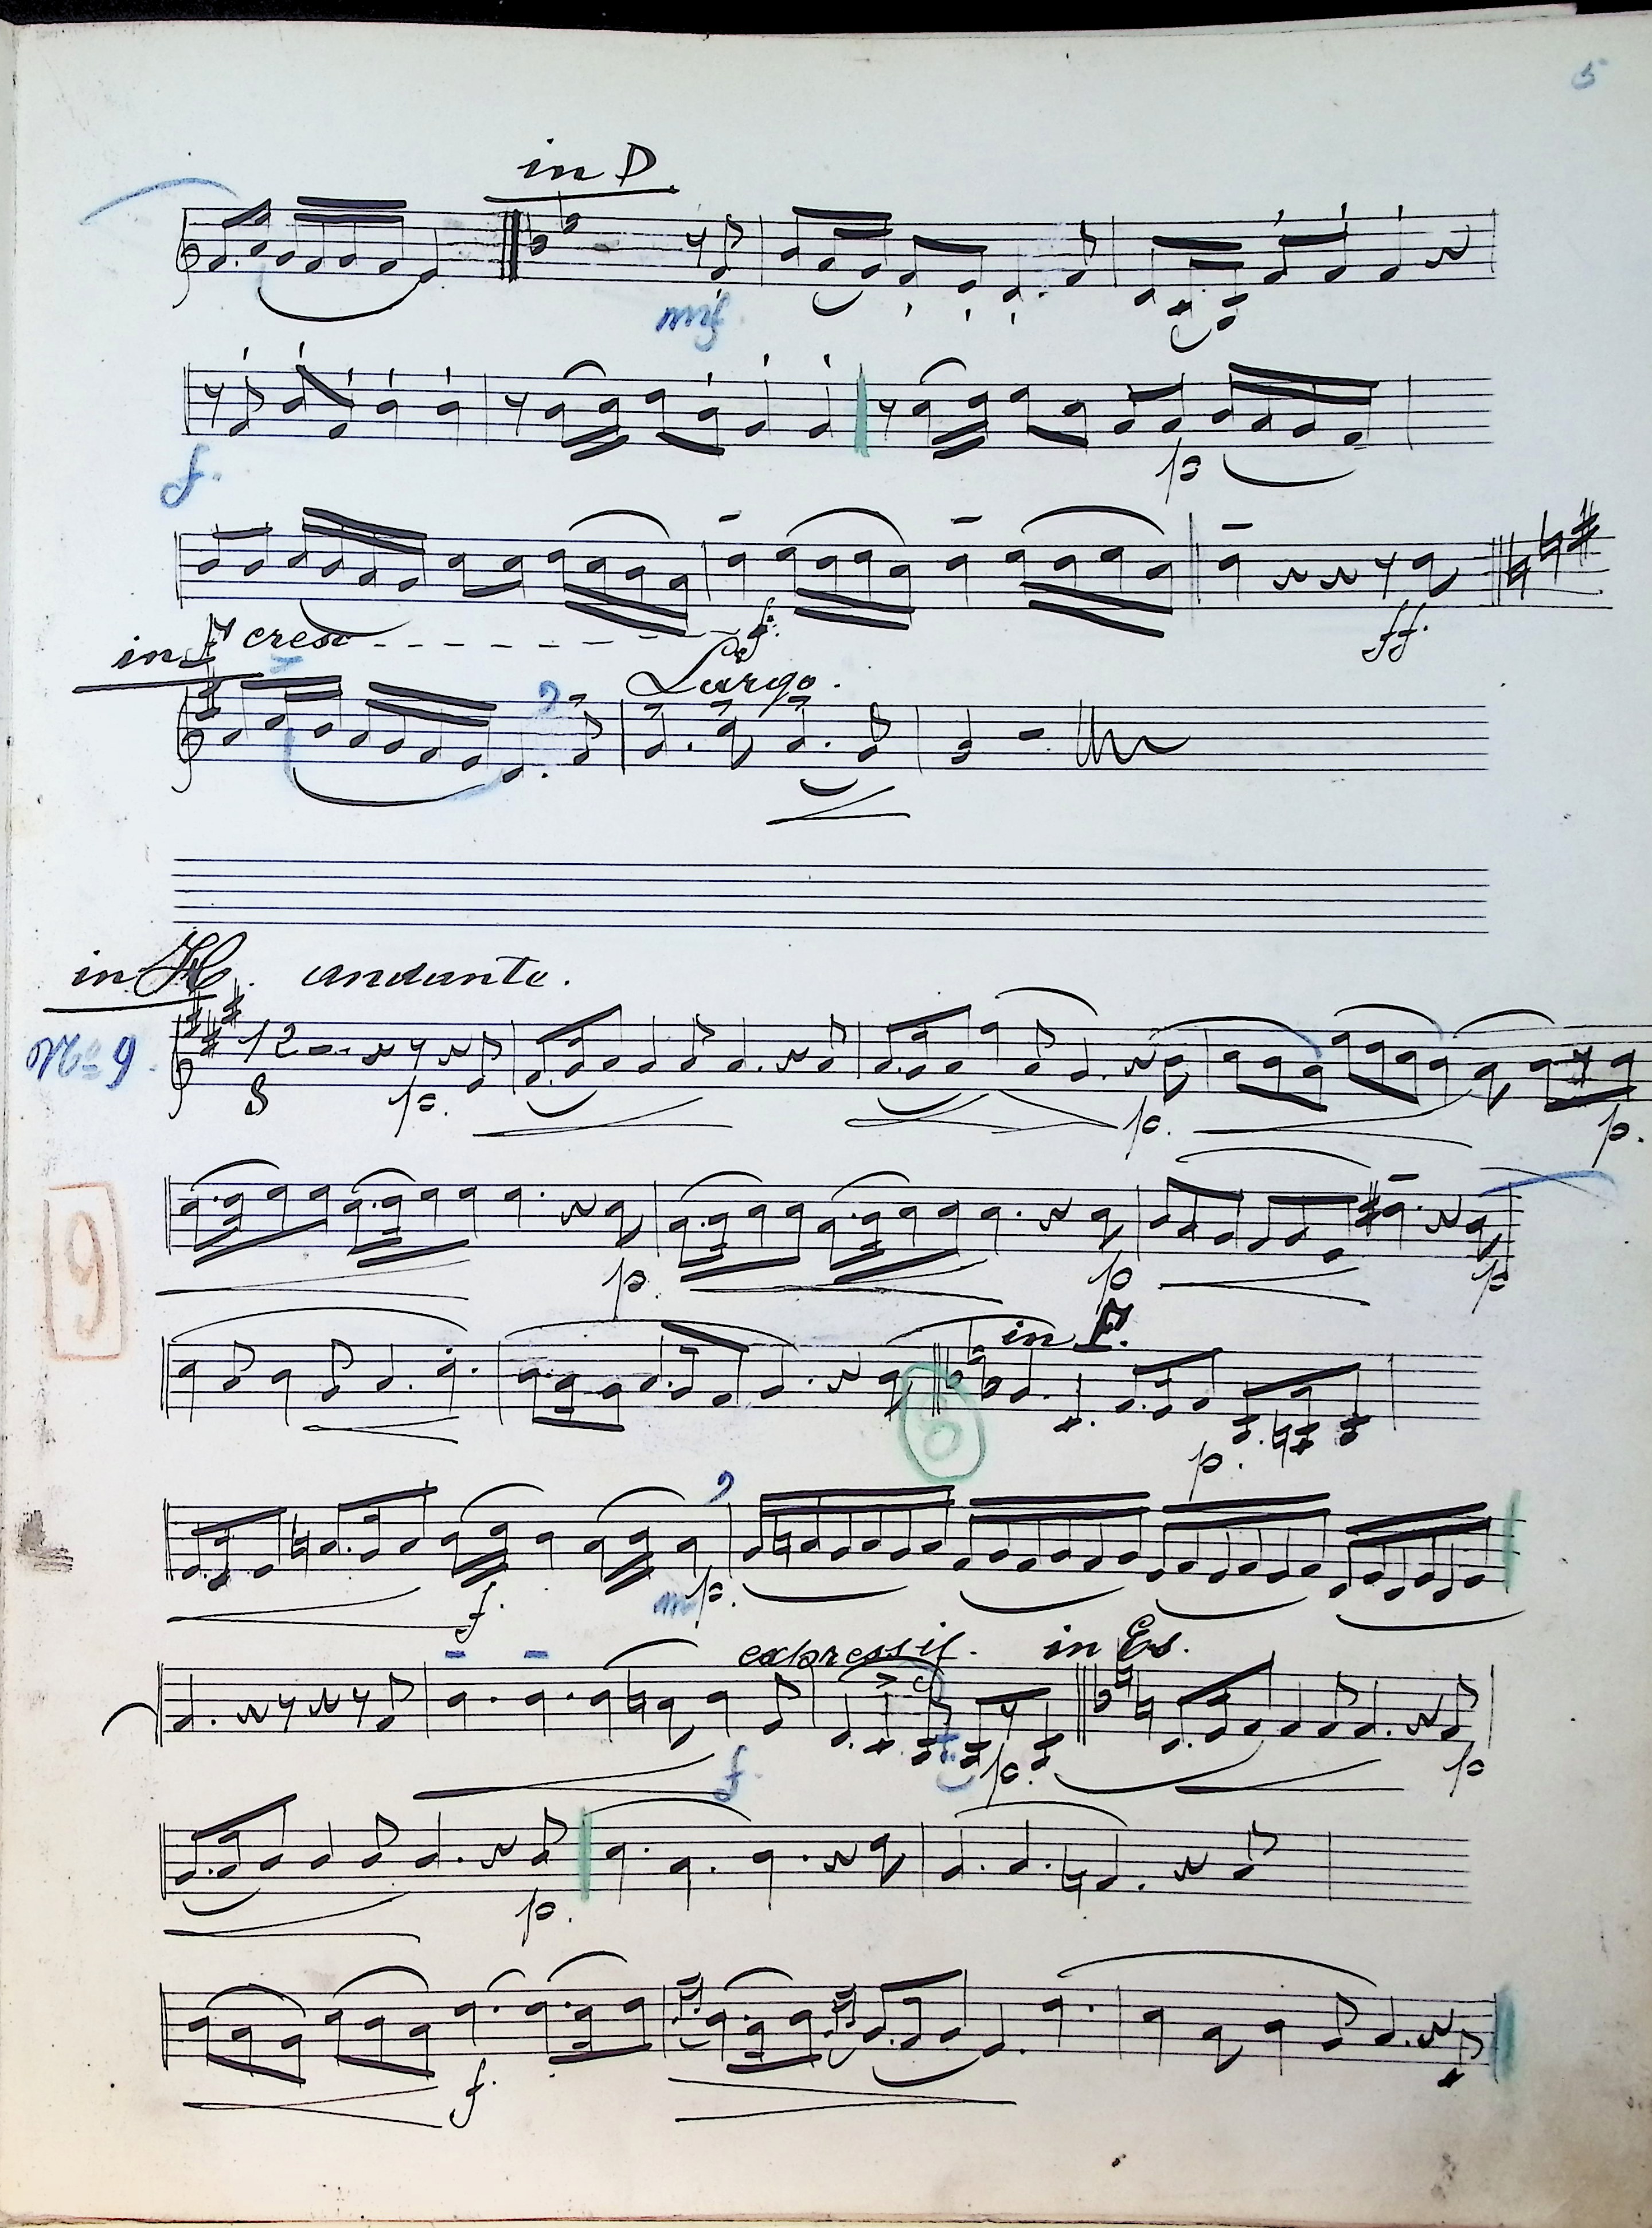 5
in D
mf.
f.
p
cresc
f.
ff.
in F
Largo.
in H. andante.
No 9.
12
8
p.
p.
p.
9
p.
p
p
in F.
6
p.
f.
mp.
expressif. in Es.
f.
p.
p
p.
f.